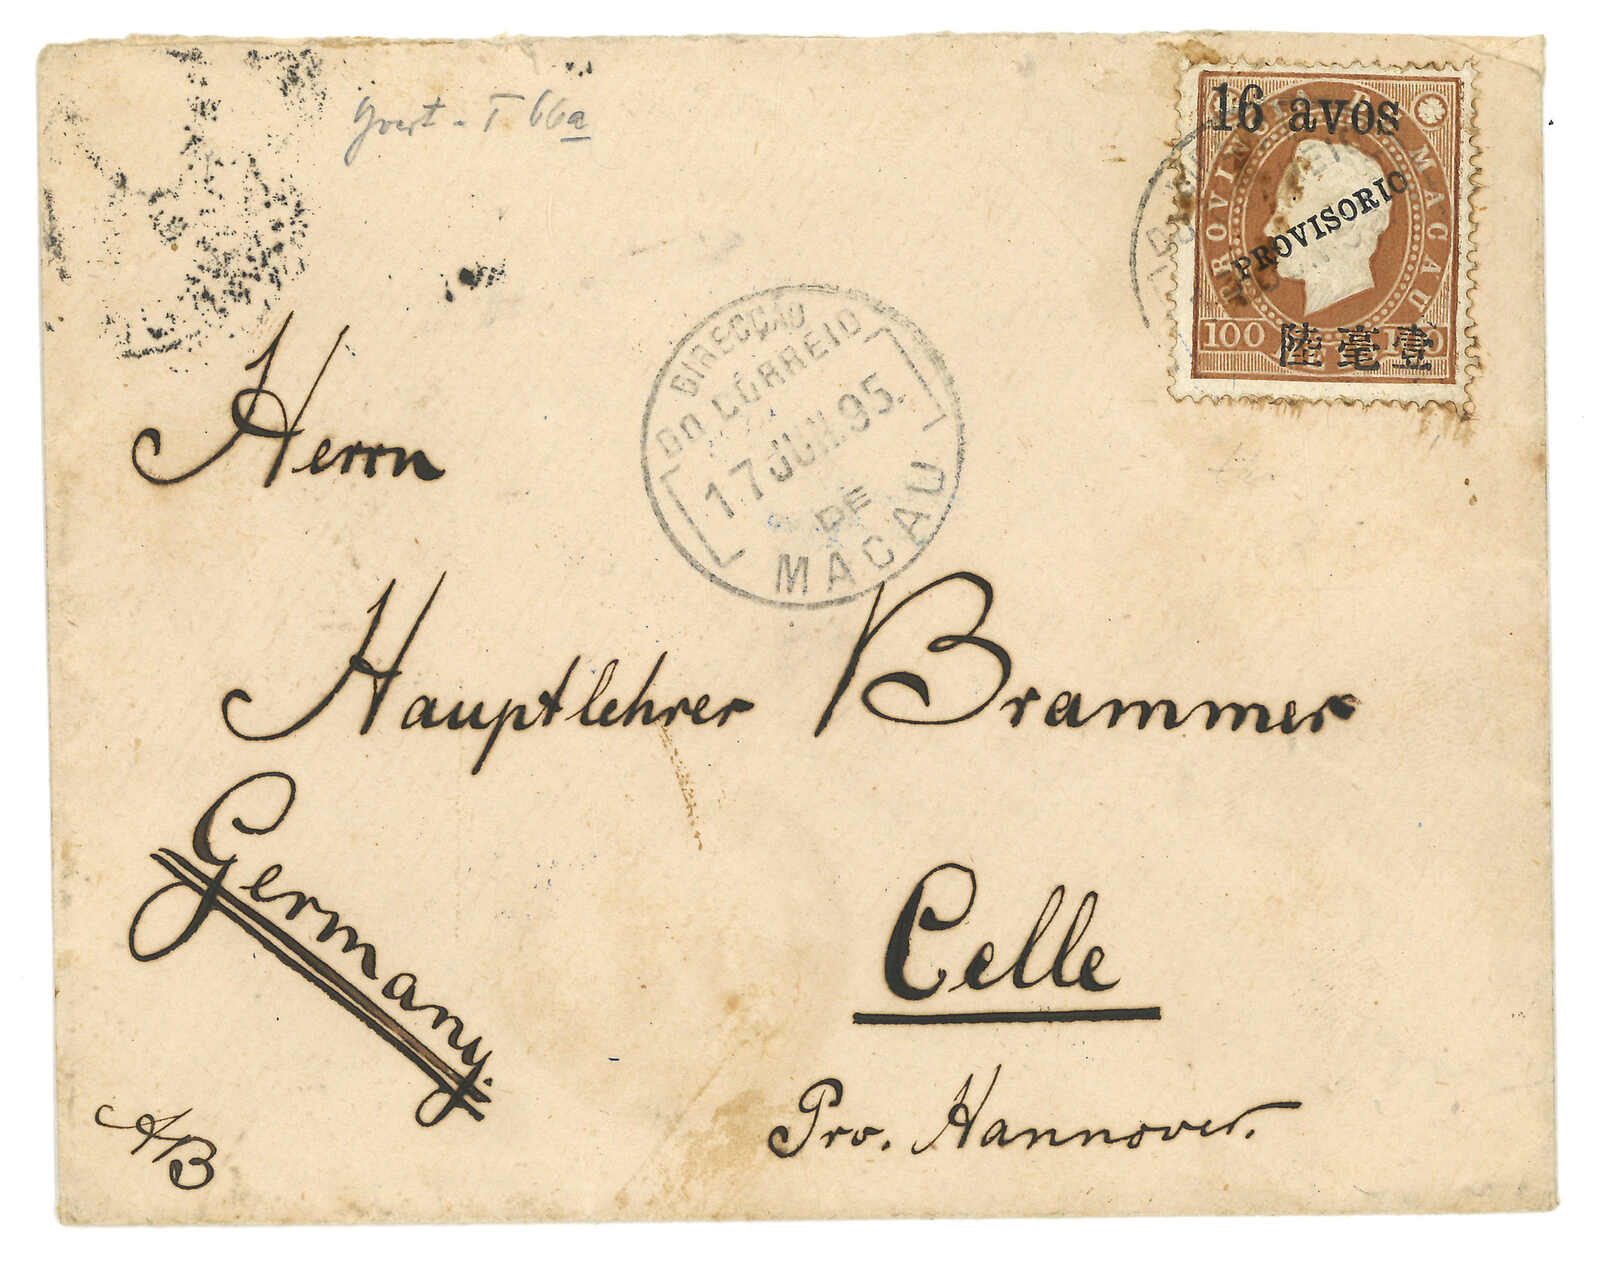 Yvert - T 66a
16 avos
PROVINCIA DE MACAU
PROVISORIO
100 100
陸毫壹
DIRECÇÃO
DO CORREIO
17 JUN. 95.
DE
MACAU
Herrn
Hauptlehrer Brammer
Germany.
Celle
Prv. Hannover.
AB